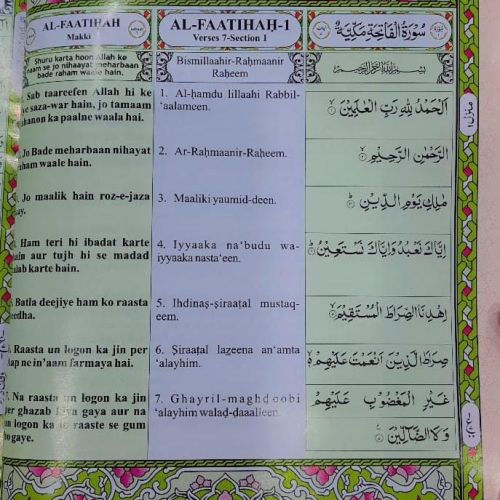 AL-FAATIHAH
Makki
Shuru karta hoon Allah ke
naam se jo nihaayat meharbaan
bade raham waale hain.
Sab taareefen Allah hi ke
saza-war hain, jo tamaam
ka paalne waala hai.
Jo Bade meharbaan nihayat
raham waale hain.
Jo maalik hain roz-e-jaza
Ham teri hi ibadat karte
hain aur tujh hi se madad
talab karte hain.
Batla deejiye ham ko raasta
seedha.
Raasta un logon ka jin per
Aap ne in'aam farmaya hai.
Na raasta un logon ka jin
per ghazab kiya gaya aur na
un logon ka jo raaste se gum
ho gaye.
AL-FAATIHAḤ-1
Verses 7-Section 1
Bismillaahir-Raḥmaanir
Raheem
1. Al-ḥamdu lillaahi Rabbil-
'aalameen.
2. Ar-Raḥmaanir-Raḥeem.
3. Maaliki yaumid-deen.
4. Iyyaaka na'budu wa-
iyyaaka nasta'een.
5. Ihdinaṣ-ṣiraaṭal mustaq-
eem.
6. Ṣiraaṭal lazeena an'amta
'alayhim.
7. Ghayril-maghḍoobi
'alayhim walaḍ-ḍaaalleen.
سُوْرَةُ الْفَاتِحَةِ مَكِّيَّةٌ
بِسْمِ اللهِ الرَّحْمٰنِ الرَّحِيْمِ
اَلْحَمْدُ لِلّٰهِ رَبِّ الْعٰلَمِيْنَ ۝١
الرَّحْمٰنِ الرَّحِيْمِ ۝٢
مٰلِكِ يَوْمِ الدِّيْنِ ۝٣
اِيَّاكَ نَعْبُدُ وَاِيَّاكَ نَسْتَعِيْنُ ۝٤
اِهْدِنَا الصِّرَاطَ الْمُسْتَقِيْمَ ۝٥
صِرَاطَ الَّذِيْنَ اَنْعَمْتَ عَلَيْهِمْ ۝٦
غَيْرِ الْمَغْضُوْبِ عَلَيْهِمْ
وَلَا الضَّآلِّيْنَ ۝٧
منزل ١